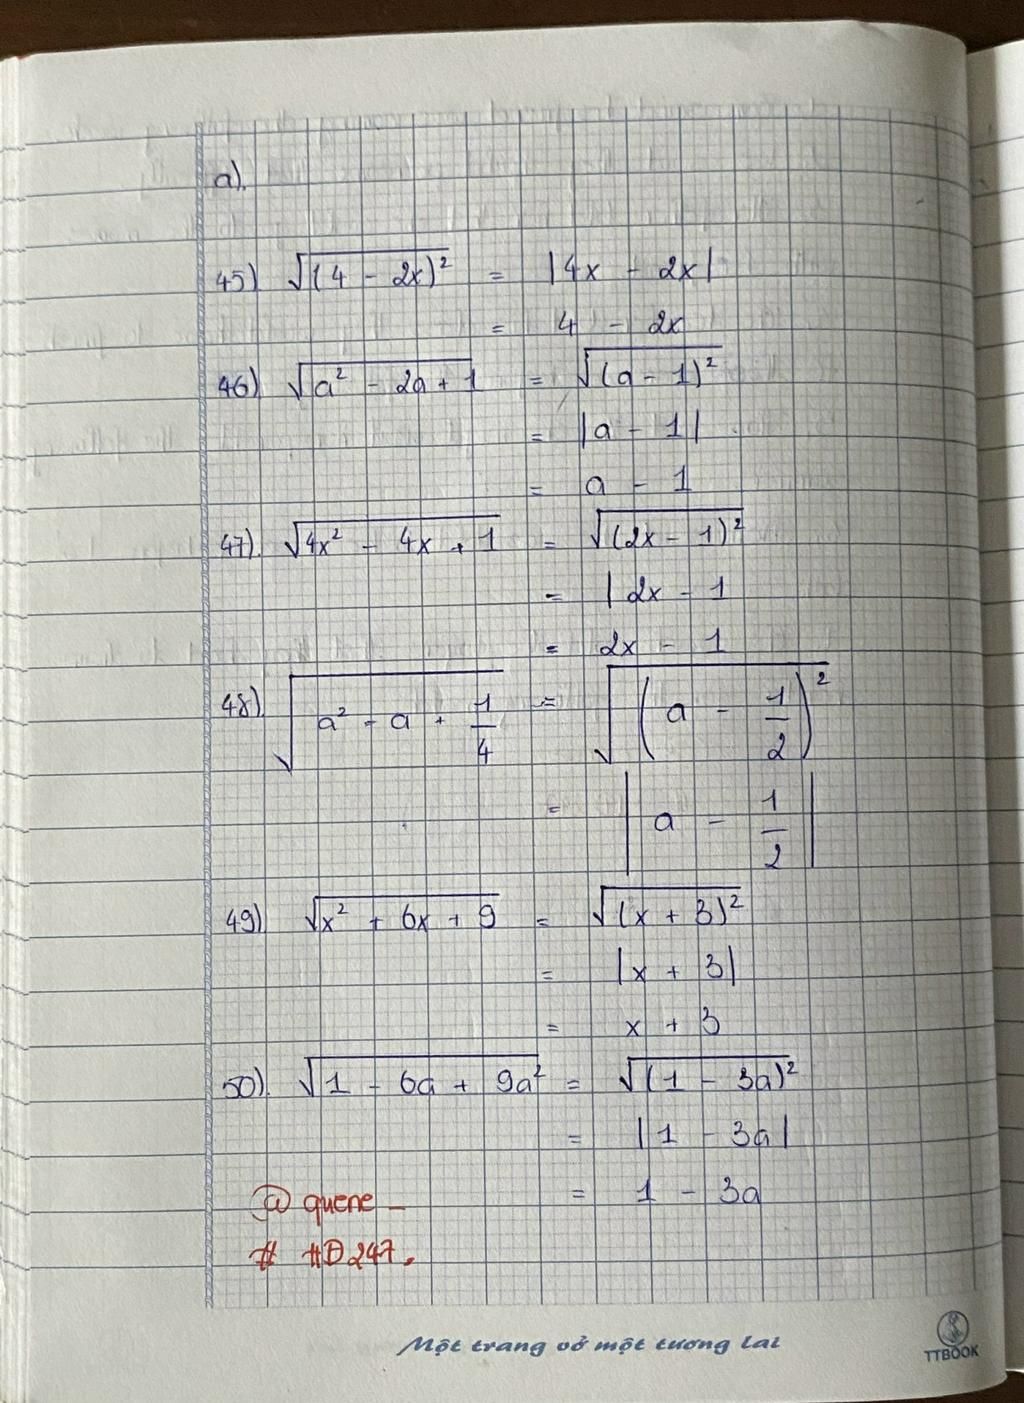 a).
45) √(4 - 2x)² = |4x - 2x|
= 4 - 2x
46) √a² - 2a + 1 = √(a - 1)²
= |a - 1|
= a - 1
47). √4x² - 4x + 1 = √(2x - 1)²
= |2x - 1
= 2x - 1
48). √a² - a + 1/4 = √(a - 1/2)²
= |a - 1/2|
49) √x² + 6x + 9 = √(x + 3)²
= |x + 3|
= x + 3
50). √1 - 6a + 9a² = √(1 - 3a)²
= |1 - 3a|
= 1 - 3a
@ quene _
# HD247.
Một trang vở một tương lai
TTBOOK